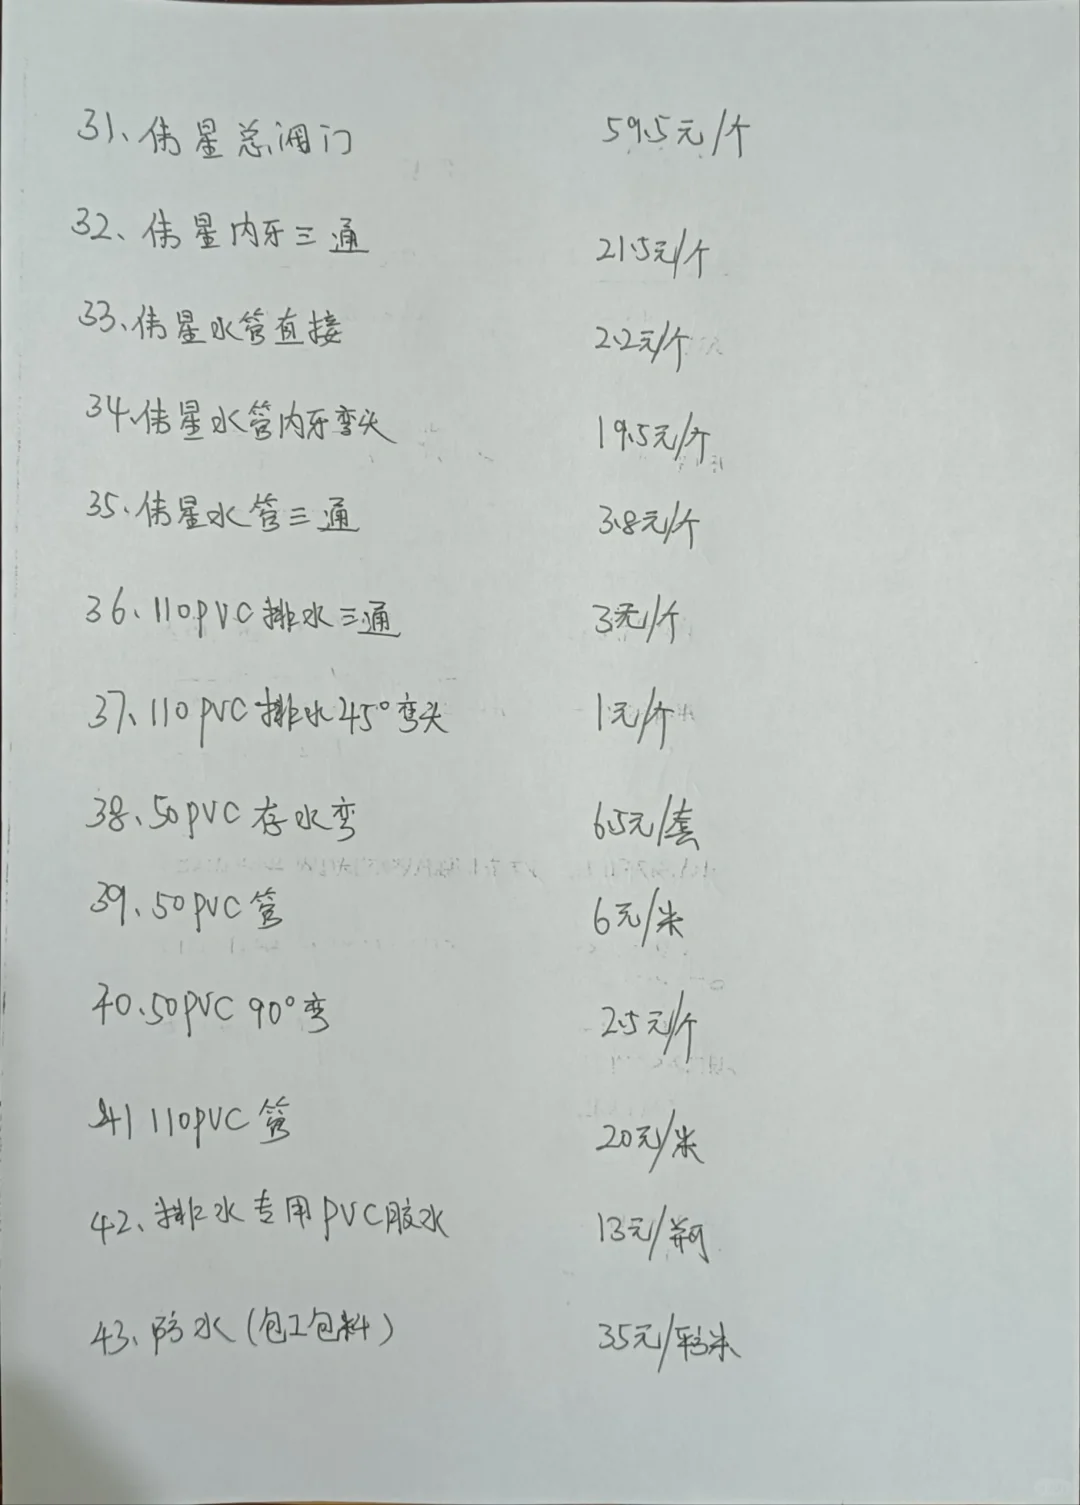 31、伟星总阀门 59.5元/个
32、伟星内牙三通 21.5元/个
33、伟星水管直接 2.2元/个
34、伟星水管内牙弯头 19.5元/个
35、伟星水管三通 3.8元/个
36、110PVC排水三通 3元/个
37、110PVC排水45°弯头 1元/个
38、50PVC存水弯 6.5元/套
39、50PVC管 6元/米
40、50PVC 90°弯 2.5元/个
41 110PVC管 20元/米
42、排水专用PVC胶水 13元/瓶
43、防水(包工包料) 35元/平方米